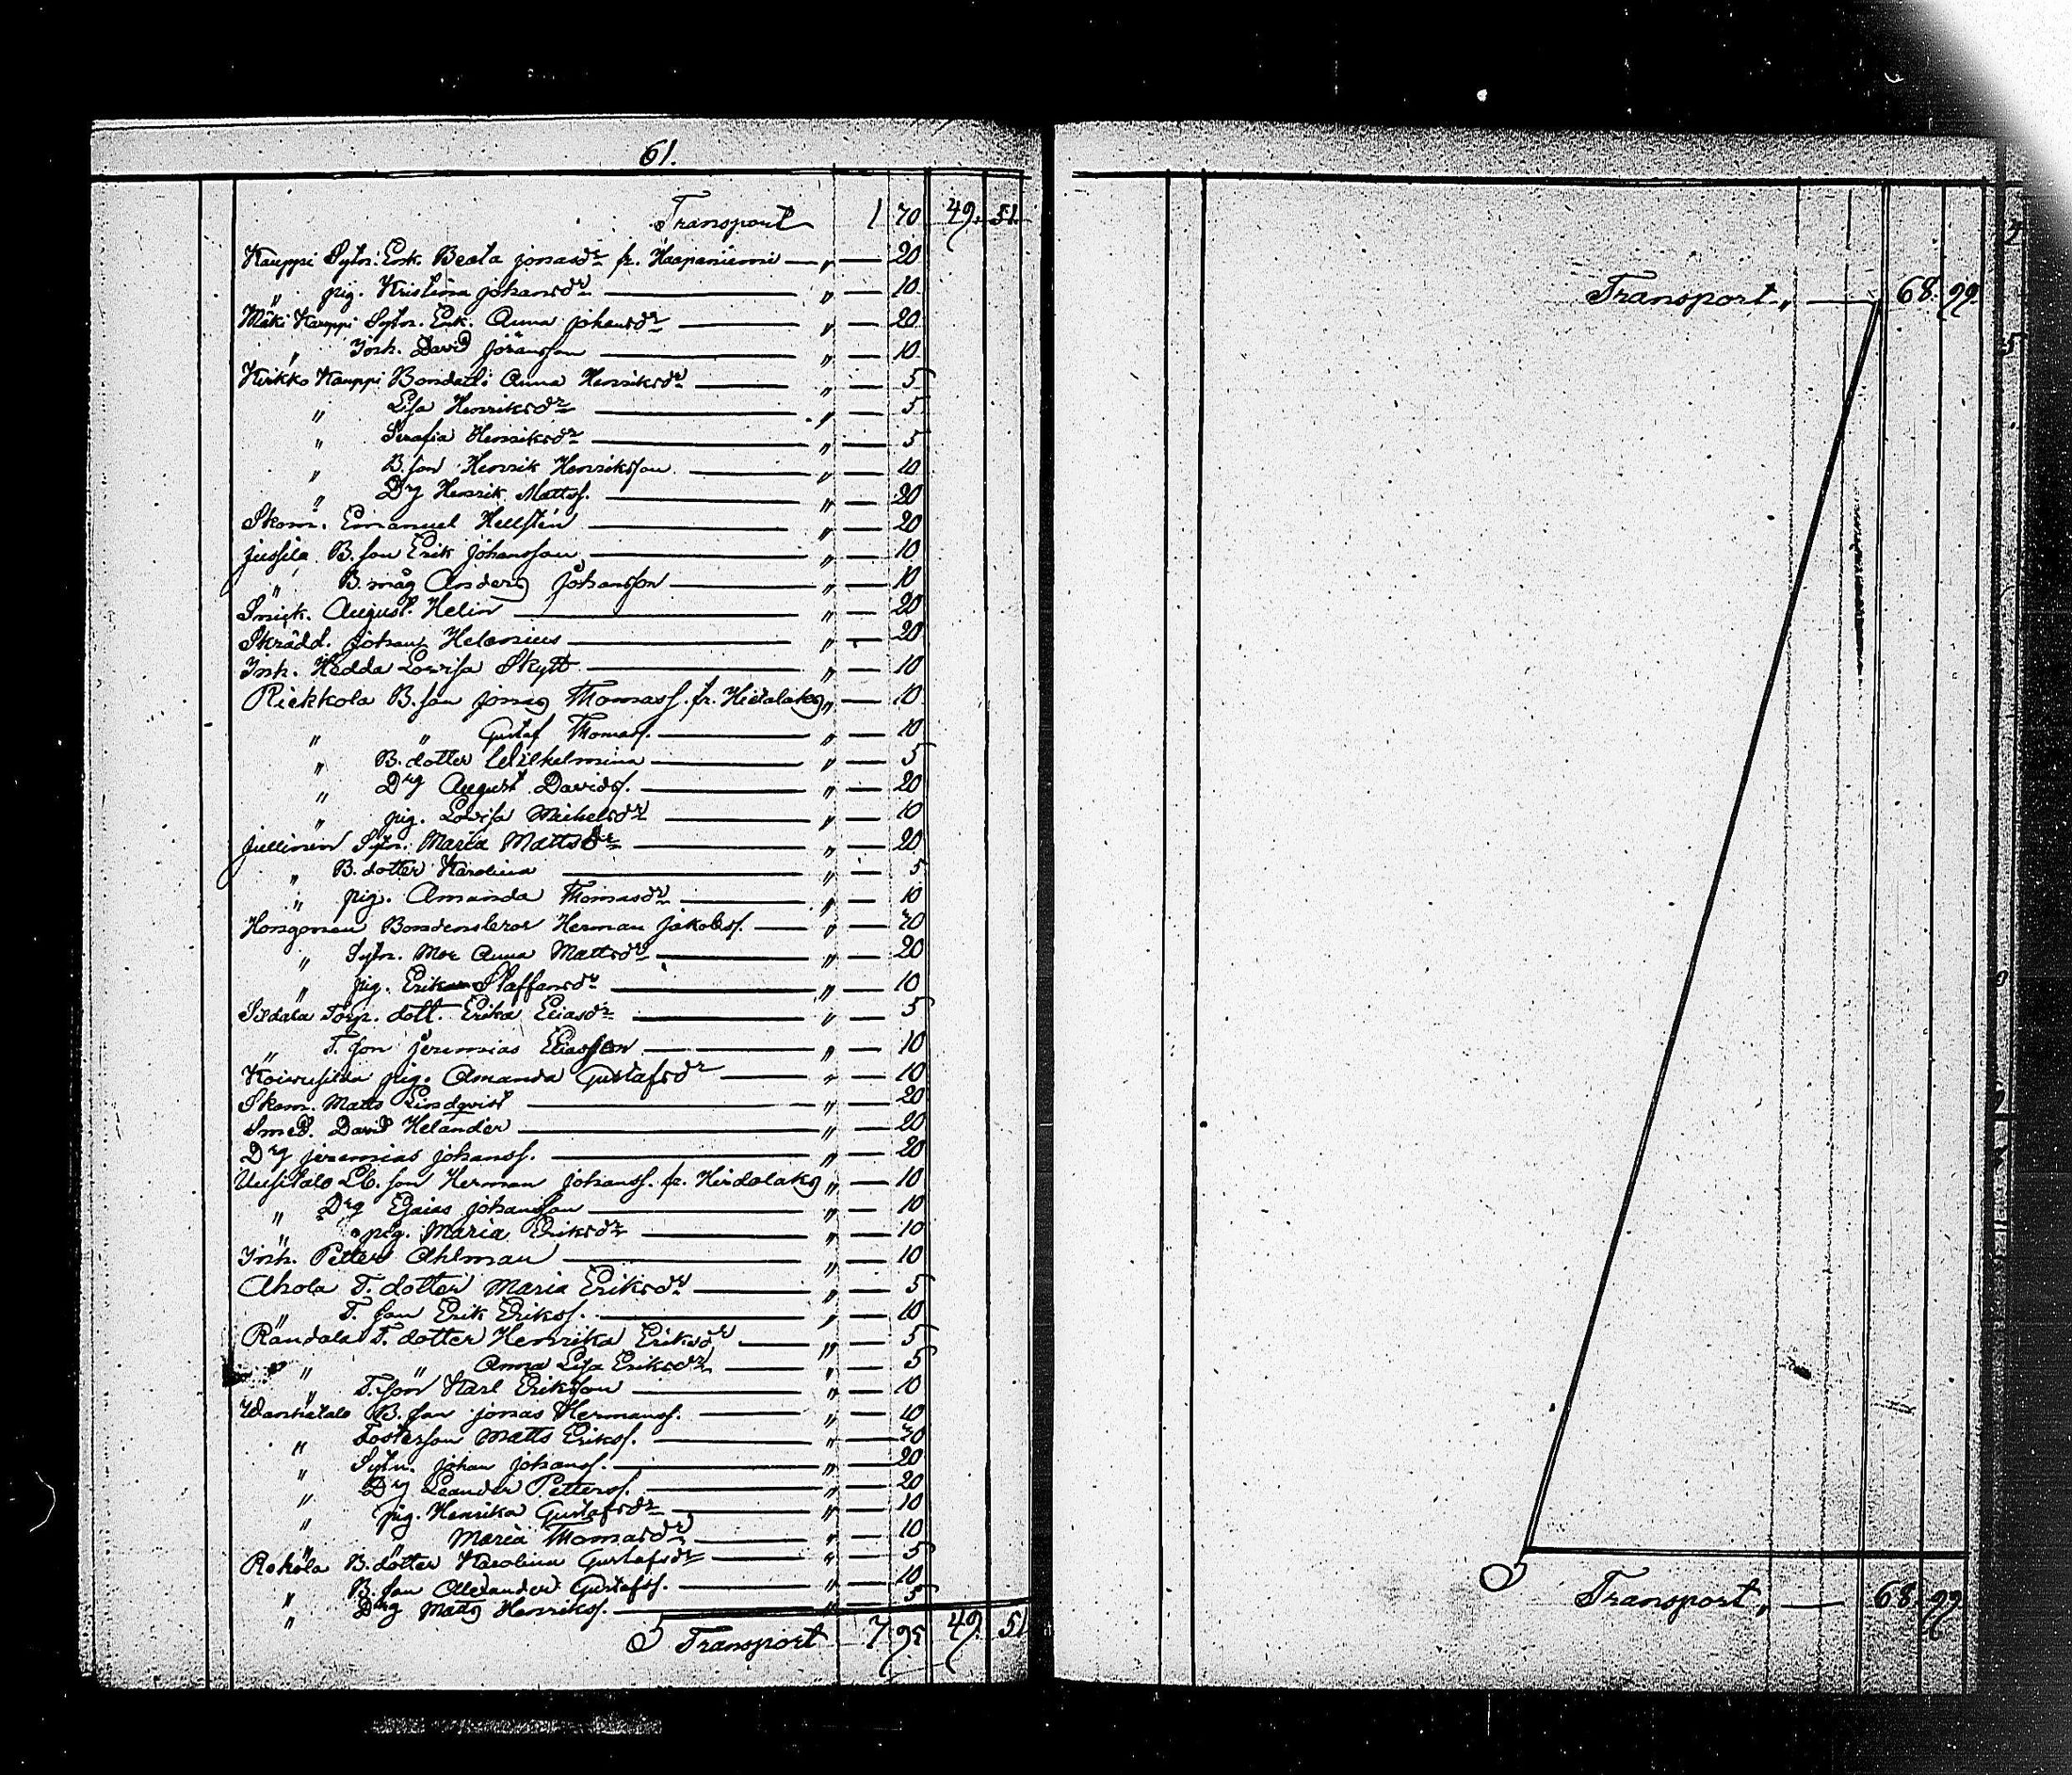 61.
Transport 1 70 49. 51.
Kauppi Sytn. Enk. Beata Jonasdr fr. Haapaniemi — " — 20
" pig. Kristina Johansdr — " — 10
Mäki Kauppi Sytn. Enk. Anna Johansdr — " — 20
" Inh. David Göransson — " — 10
Kirkko Kauppi Bondedr Anna Henriksdr — " — 5
" Lisa Henriksdr — " — 5
" Serafia Henriksdr — " — 5
" B. son Henrik Henriksson — " — 10
" Drg Henrik Mattss. — " — 20
Skom. Emanuel Hellstén — " — 20
Jussila B. son Erik Johansson — " — 10
" B. måg Anders Johansson — " — 10
Snick. August Helin — " — 20
Skrädd. Johan Helenius — " — 20
Inh. Hedda Lovisa Skytt — " — 10
Riekkola B. son Jonas Thomass. fr. Hirdalaks " — 10
" " Gustaf Thomass. — " — 10
" B. dotter Wilhelmina — " — 5
" Drg August Davids. — " — 20
" pig. Lovisa Michelsdr — " — 10
Jullinen Sytn. Maria Mattsdr — " — 20
" B. dotter Karolina — " — 5
" pig. Amanda Thomasdr — " — 10
Hongonen Bondens bror Herman Jakobss. — " — 20
" Sytn. Mor Anna Mattsdr — " — 20
" pig. Erika Staffansdr — " — 10
Sildala Torp. dott. Erika Eliasdr — " — 5
" T. son Jeremias Eliasson — " — 10
pig. Amanda Gustafsdr — " — 10
Skom. Matts Lindqvist — " — 20
Smed. David Helander — " — 20
Drg Jeremias Johanss. — " — 20
Uusitalo B. son Herman Johanss. fr. Hirdalaks " — 10
" Drg Esaias Johansson — " — 10
" pig. Maria Eriksdr — " — 10
Inh. Petter Ahlman — " — 10
Ahola T. dotter Maria Eriksdr — " — 5
" T. son Erik Erikss. — " — 10
Randala T. dotter Henrika Eriksdr — " — 5
" " Anna Lisa Eriksdr — " — 5
" T. son Karl Eriksson — " — 10
Wanhatalo B. son Jonas Hermanss. — " — 10
" Fosterson Matts Erikss. — " — 20
" Sytn. Johan Johanss. — " — 20
" Drg Leander Petterss. — " — 20
" pig. Henrika Gustafsdr — " — 10
" " Maria Thomasdr — " — 10
Rokola B. dotter Karolina Gustafsdr — " — 5
" B. son Alexander Gustafss. — " — 10
" Drg Matts Henrikss. — " — 5
Transport 7 95 49. 51
Transport " — 68. 99.
Transport " — 68. 99.